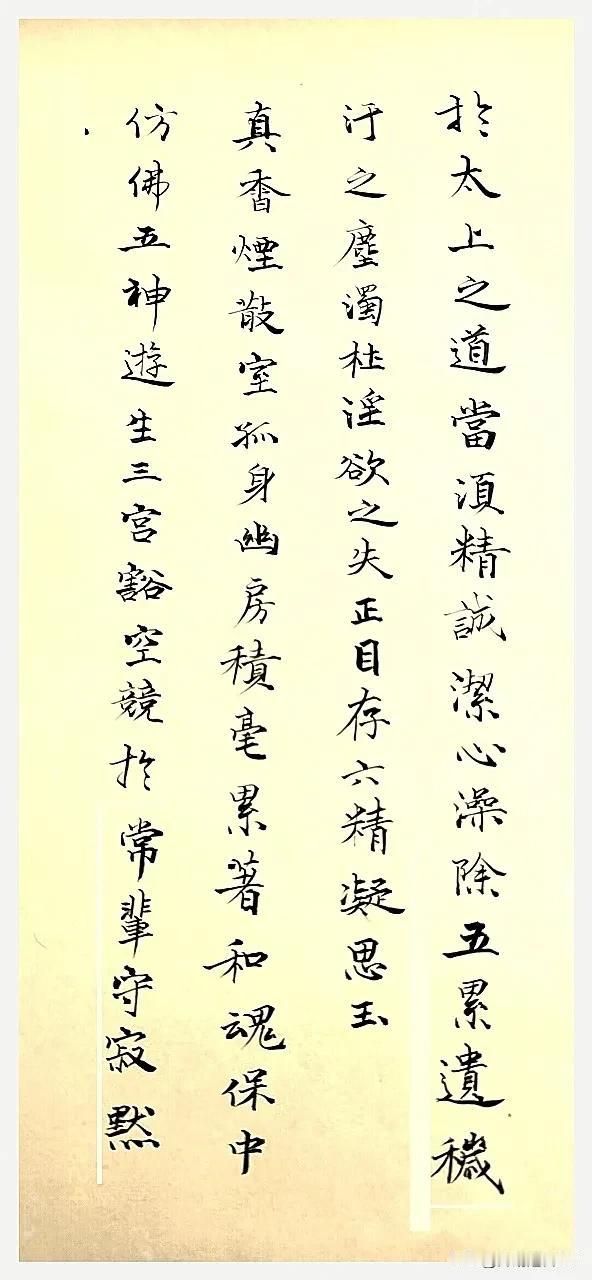 於太上之道當須精誠潔心澡除五累遺穢
汙之塵濁杜淫欲之失正目存六精凝思玉
真香煙散室孤身幽房積毫累著和魂保中
仿佛五神遊生三宮豁空競於常輩守寂默